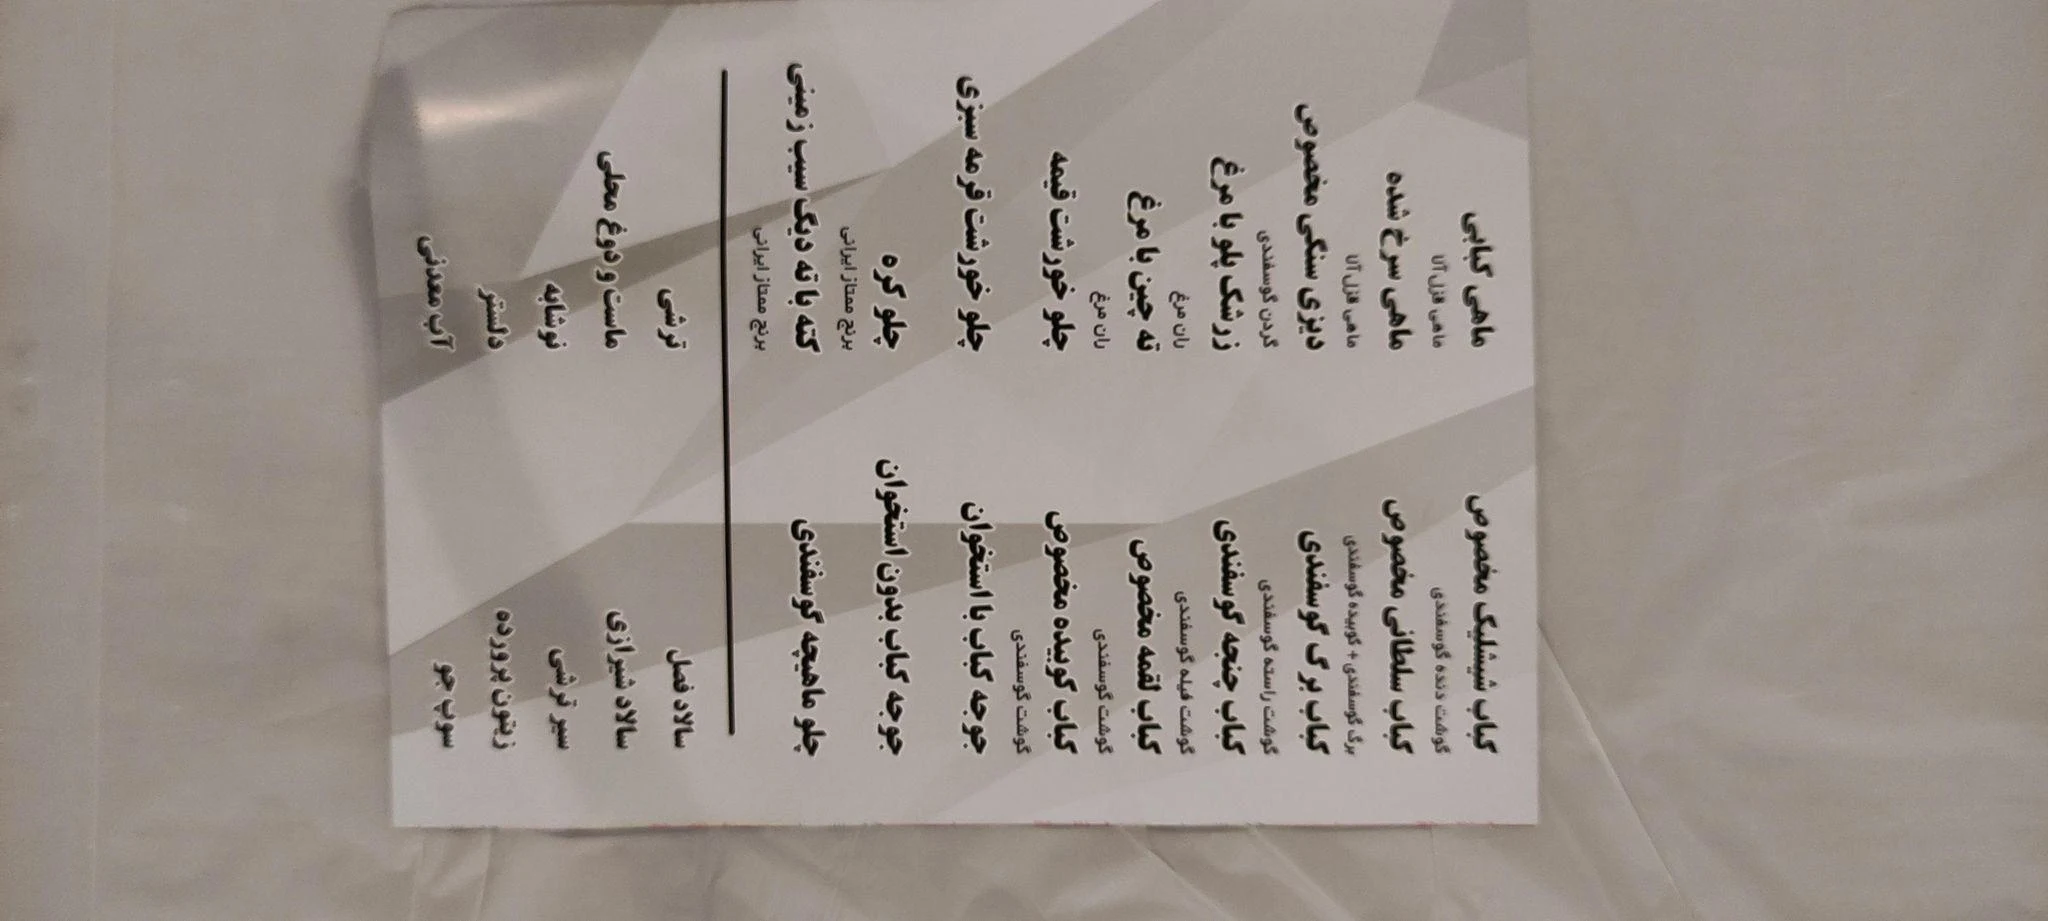 کباب شیشلیک مخصوص
گوشت دنده گوسفندی
کباب سلطانی مخصوص
برگ گوسفندی + کوبیده گوسفندی
کباب برگ گوسفندی
گوشت راسته گوسفندی
کباب چنجه گوسفندی
گوشت فیله گوسفندی
کباب لقمه مخصوص
گوشت گوسفندی
کباب کوبیده مخصوص
گوشت گوسفندی
جوجه کباب با استخوان
جوجه کباب بدون استخوان
چلو ماهیچه گوسفندی
ماهی کبابی
ماهی قزل آلا
ماهی سرخ شده
ماهی قزل آلا
دیزی سنگی مخصوص
گردن گوسفندی
زرشک پلو با مرغ
ران مرغ
ته چین با مرغ
ران مرغ
چلو خورشت قیمه
چلو خورشت قرمه سبزی
چلو کره
برنج ممتاز ایرانی
کته با ته دیگ سیب زمینی
برنج ممتاز ایرانی
سالاد فصل
سالاد شیرازی
سیر ترشی
زیتون پرورده
سوپ جو
ترشی
ماست و دوغ محلی
نوشابه
دلستر
آب معدنی